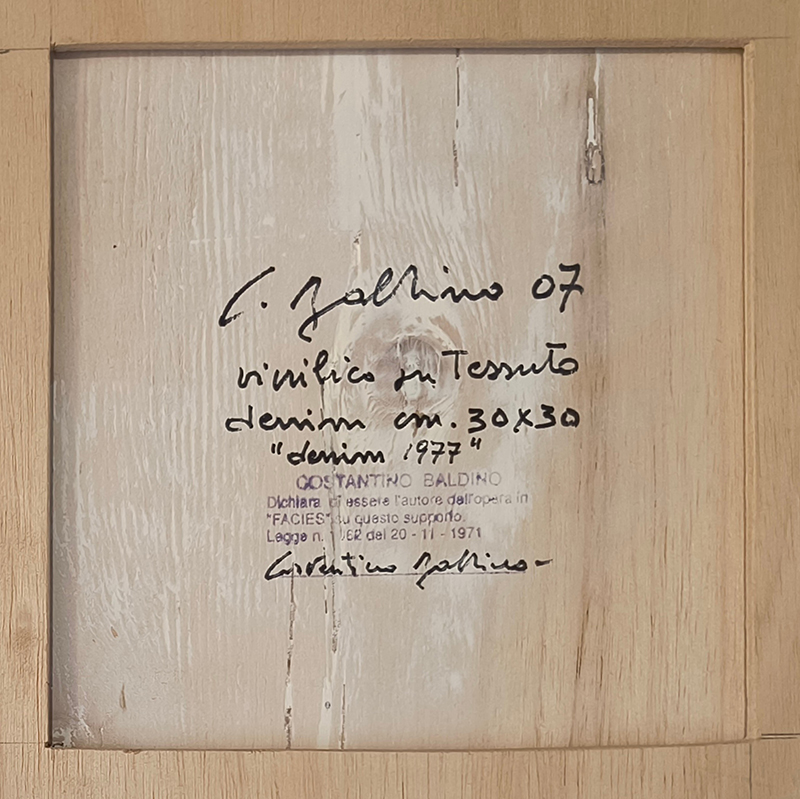 C. Baldino 07
vinilico su Tessuto
denim cm. 30x30
"denim 1977"
COSTANTINO BALDINO
Dichiara di essere l'autore dell'opera in
"FACIES" su questo supporto.
Legge n. 1062 del 20 - 11 - 1971
Costantino Baldino